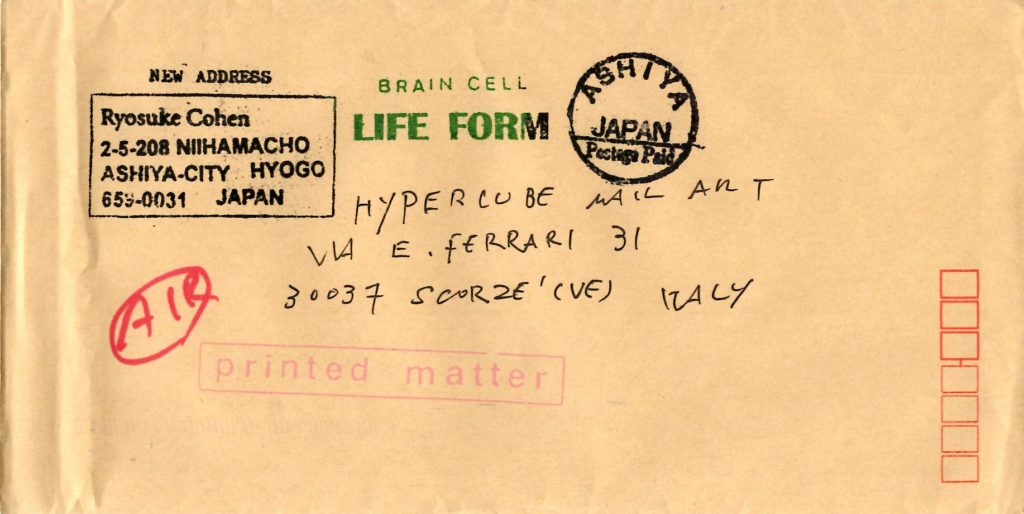 NEW ADDRESS
Ryosuke Cohen
2-5-208 NIIHAMACHO
ASHIYA-CITY HYOGO
659-0031 JAPAN
BRAIN CELL
LIFE FORM
ASHIYA
JAPAN
Postage Paid
HYPERCUBE MAIL ART
VIA E. FERRARI 31
30037 SCORZE' (VE) ITALY
AIR
printed matter